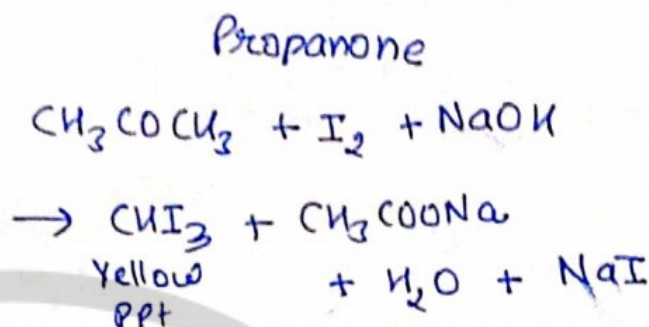 Propanone
CH₃COCH₃ + I₂ + NaOH
→ CHI₃ + CH₃COONa
Yellow + H₂O + NaI
ppt